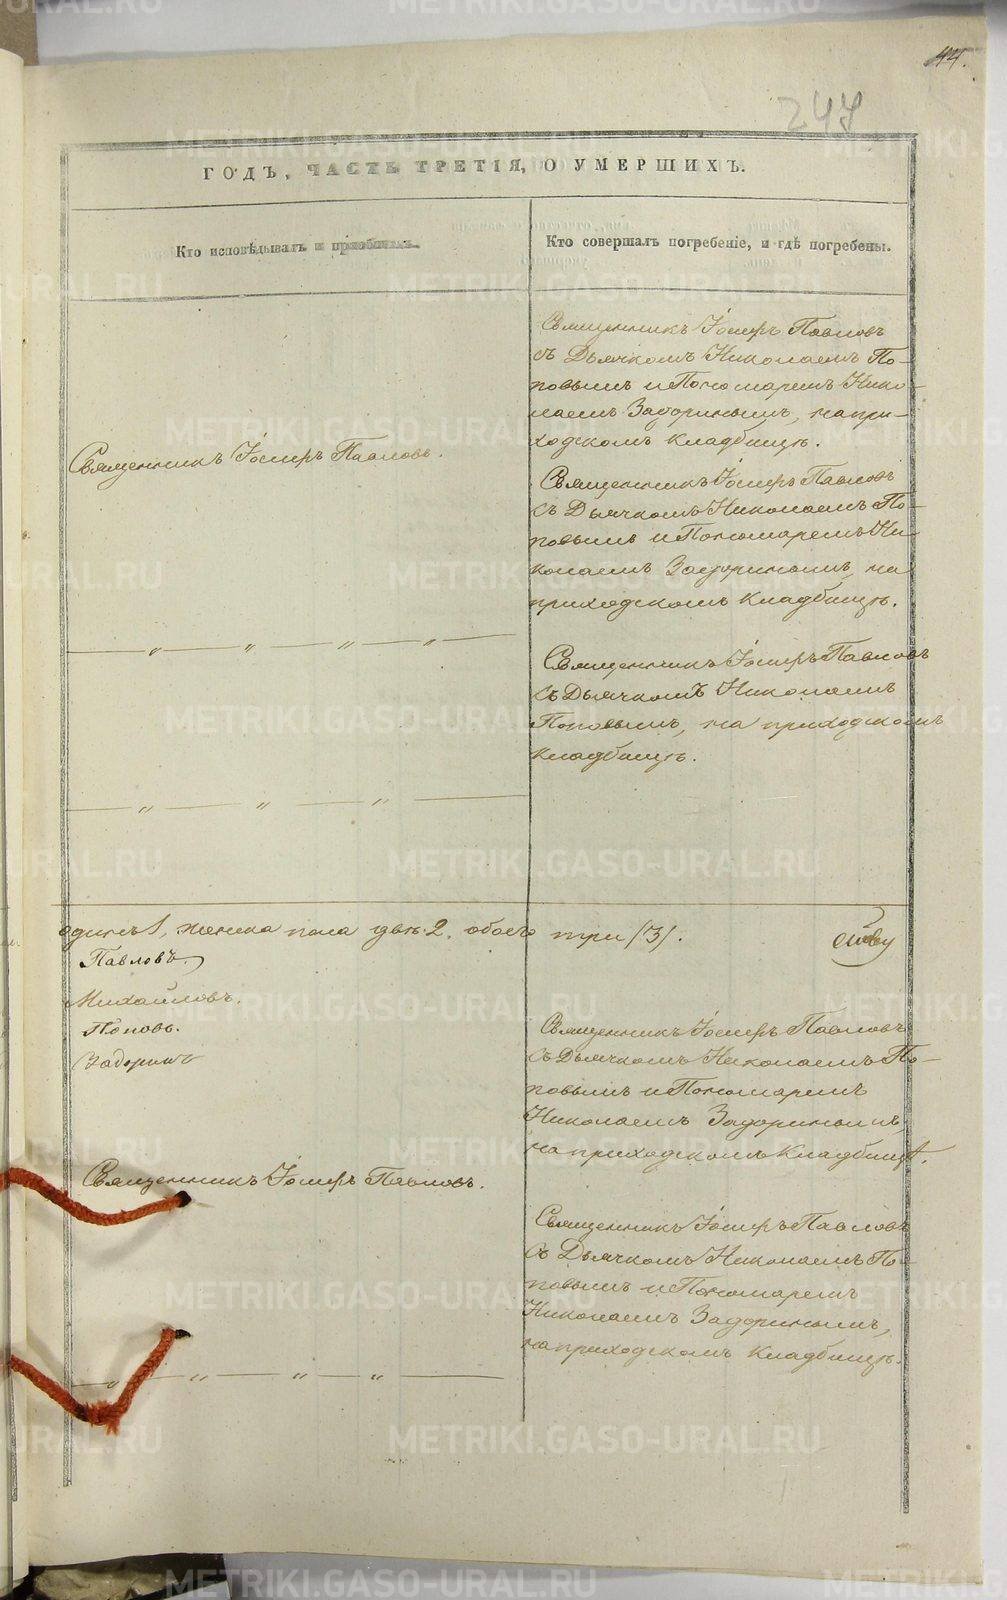 44.
247
ГОДЪ, ЧАСТЬ ТРЕТІЯ, О УМЕРШИХЪ.
Кто исповѣдывалъ и пріобщалъ.
Кто совершалъ погребеніе, и гдѣ погребены.
Священникъ Іосифъ Павловъ
съ Дьячкомъ Николаемъ По-
повымъ и Пономаремъ Нико-
лаемъ Задоринымъ, на при-
ходскомъ кладбищѣ.
Священникъ Іосифъ Павловъ.
Священникъ Іосифъ Павловъ
съ Дьячкомъ Николаемъ По-
повымъ и Пономаремъ Ни-
колаемъ Задоринымъ, на
приходскомъ кладбищѣ.
— „ — „ — „ — „ —
Священникъ Іосифъ Павловъ
съ Дьячкомъ Николаемъ
Поповымъ, на приходскомъ
кладбищѣ.
— „ — „ — „ —
одинъ 1, женска пола двѣ 2. обоего три (3).
Павловъ.
Михайловъ.
Поповъ.
Задоринъ
Священникъ Іосифъ Павловъ
съ Дьячкомъ Николаемъ По-
повымъ и Пономаремъ
Николаемъ Задоринымъ,
на приходскомъ кладбищѣ.
Священникъ Іосифъ Павловъ.
Священникъ Іосифъ Павловъ
съ Дьячкомъ Николаемъ По-
повымъ и Пономаремъ
Николаемъ Задоринымъ,
на приходскомъ кладбищѣ.
— „ — „ — „ — „ —
METRIKI.GASO-URAL.RU